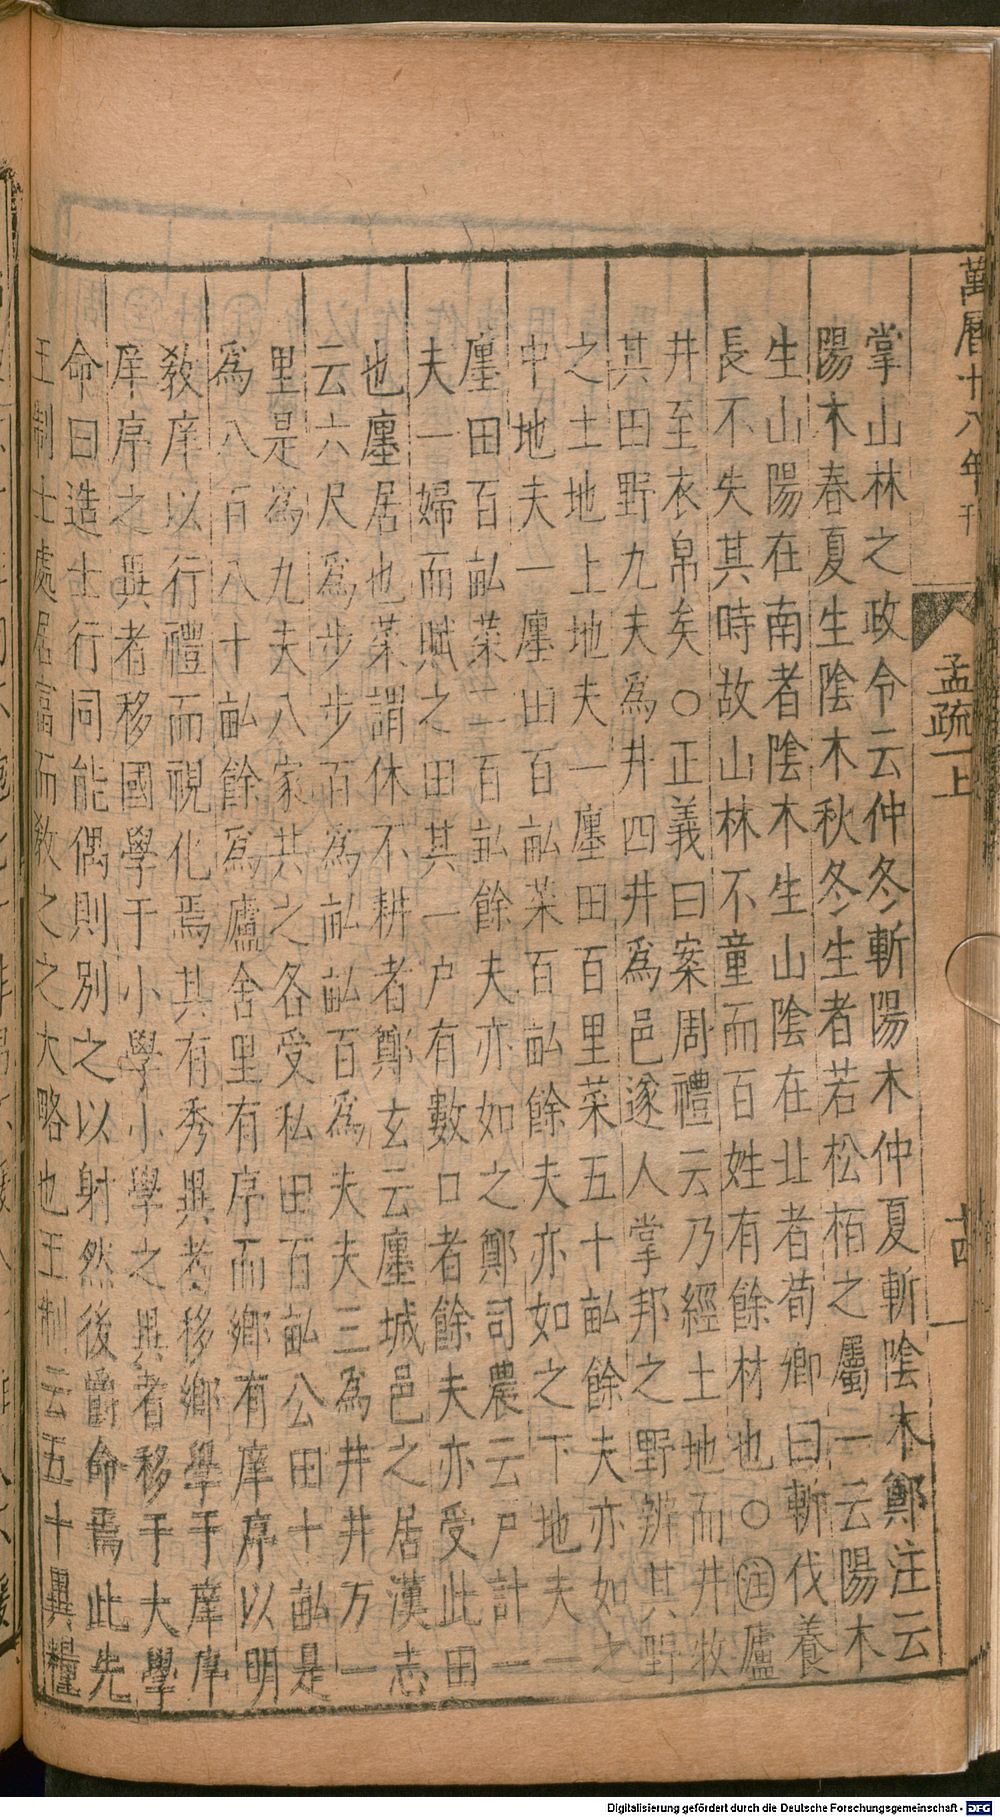 萬曆十八年刊
孟疏一上
十四
掌山林之政令云仲冬斬陽木仲夏斬陰木鄭注云
陽木春夏生陰木秋冬生者若松栢之屬一云陽木
生山陽在南者陰木生山陰在北者荀卿曰斬伐養
長不失其時故山林不童而百姓有餘材也○注廬
井至衣帛矣○正義曰案周禮云乃經土地而井牧
其田野九夫為井四井爲邑遂人掌邦之野辨其野
之土地上地夫一廛田百里菜五十畝餘夫亦如之
中地夫一廛田百畝菜百畝餘夫亦如之下地夫一
廛田百畝菜二百畝餘夫亦如之鄭司農云戶計一
夫一婦而賦之田其一户有數口者餘夫亦受此田
也廛居也菜謂休不耕者鄭玄云廛城邑之居漢志
云六尺爲步步百爲畝畝百爲夫夫三爲井井方一
里是爲九夫八家共之各受私田百畝公田十畝是
爲八百八十畝餘爲廬舍里有序而鄉有庠序以明
教庠以行禮而視化焉其有秀異者移鄉學于庠庠
庠序之異者移國學于小學小學之異者移于大學
命曰造士行同能偶則別之以射然後爵命焉此先
王制士處居富而教之之大略也王制云五十異糧
Digitalisierung gefördert durch die Deutsche Forschungsgemeinschaft - DFG